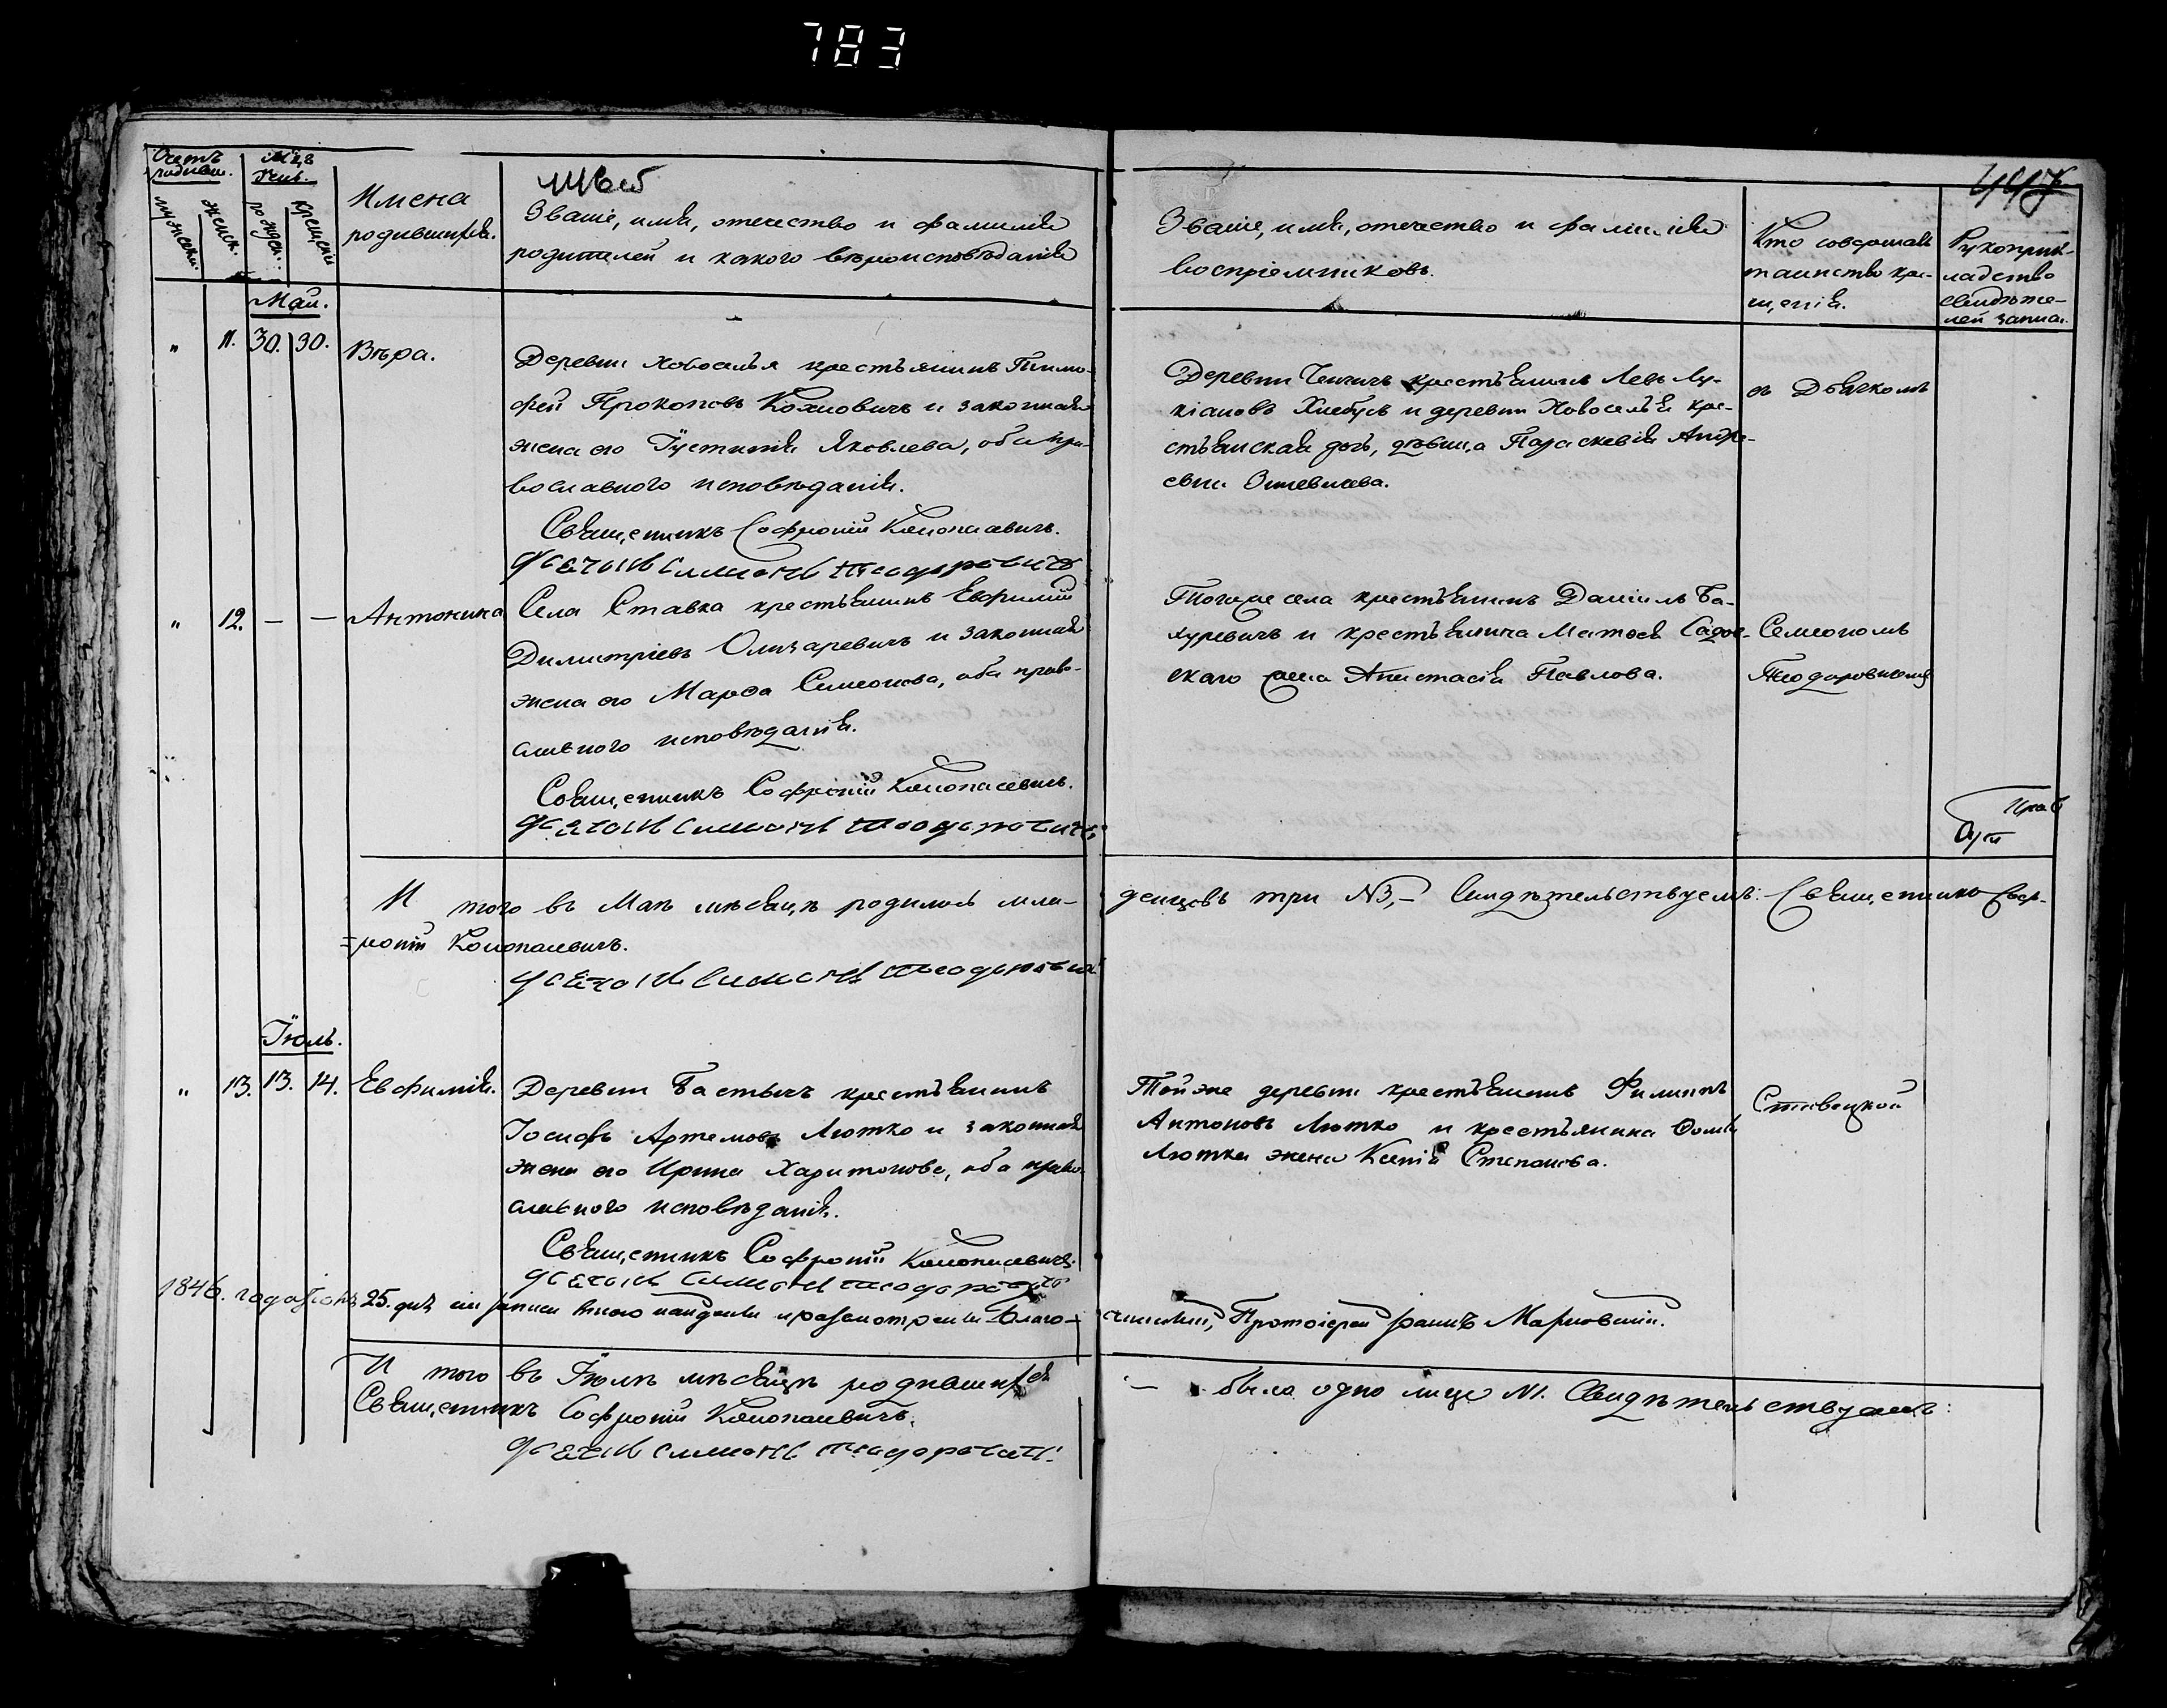 783
Счетъ родивш.
Мцъ
День.
мужеск.
женск.
рожден.
крещенія
Имена
родившихся.
Званіе, имя, отечество и фамилія
родителей и какого вѣроисповѣданія
Званіе, имя, отечество и фамилія
воспріемниковъ.
Кто совершалъ
таинство кре-
щенія.
Рукоприк-
ладство
свидѣте-
лей запис.
Май.
" 11. 30. 30. Вѣра.
Деревни Новоселья крестьянинъ Тимо-
фей Прокоповъ Кохновичъ и законная
жена его Іустинія Яковлева, оба пра-
вославного исповѣданія.
Священникъ Софроній Конопасевичъ.
Дьячокъ Симеонъ Теодоровичъ
Деревни крестьянинъ Левъ Лу-
кіановъ Хлебусъ и деревни Новоселья кре-
стьянская дочь, дѣвица Параскевія Андре-
евна
съ Дьячкомъ
" 12. — — Антонина
Села Ставка крестьянинъ Евфимій
Димитріевъ Олизаревичъ и законная
жена его Марѳа Симеонова, оба право-
славного исповѣданія.
Священникъ Софроній Конопасевичъ.
Дьячокъ Симеонъ Теодоровичъ
Тогоже села крестьянинъ Даніилъ Ба-
хуревичъ и крестьянина Матѳея Садов-
скаго жена Анастасія Павлова.
Семеономъ
Теодоровичемъ
И того въ Маѣ мѣсяцѣ родилось мла-
денцовъ три №3,— Свидѣтельствуемъ: Священникъ Соф-
=роній Конопасевичъ.
Дьячокъ Симеонъ Теодоровичъ
Іюль.
" 13. 13. 14. Евфимія.
Деревни Бастычъ крестьянинъ
Іосифъ Артемовъ Лютко и законная
жена его Ирина Харитонова, оба право-
славного исповѣданія.
Священникъ Софроній Конопасевичъ.
Дьячокъ Симеонъ Теодоровичъ
Тойже деревни крестьянинъ Филиппъ
Антоновъ Лютко и крестьянина Ѳомы
Лютки жена Ксенія Степанова.
Ставецкой
1846. года 25. дня сіи записи мною найдены и разсмотрены Благо-
чинный, Протоіерей Іоаннъ Марковскій.
И того въ Іюлѣ мѣсяцѣ родившихся
— было одно лице №1. Свидѣтельствуемъ:
Священникъ Софроній Конопасевичъ.
Дьячокъ Симеонъ Теодоровичъ.